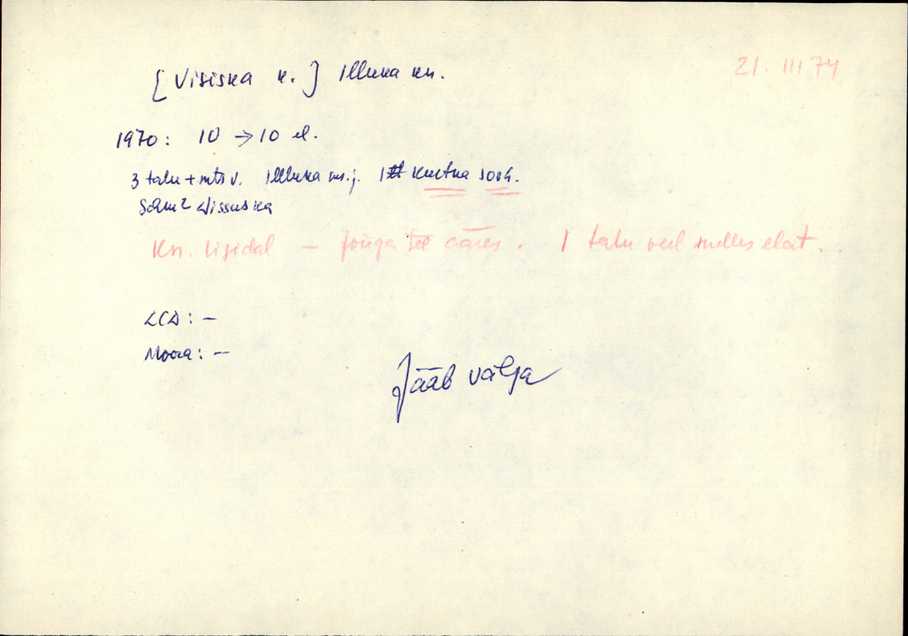 [Visiska k.] Illuka kn.
21. III 74
1970: 10 → 10 el.
3 talu + mts v. Illuka kn.j. Kurtna sooh.
Sama Wissuska
Kn. ligidal — Jõuga tee ääres. 1 talu veel selles elat.
LCD: —
Moora: —
Jääb välja